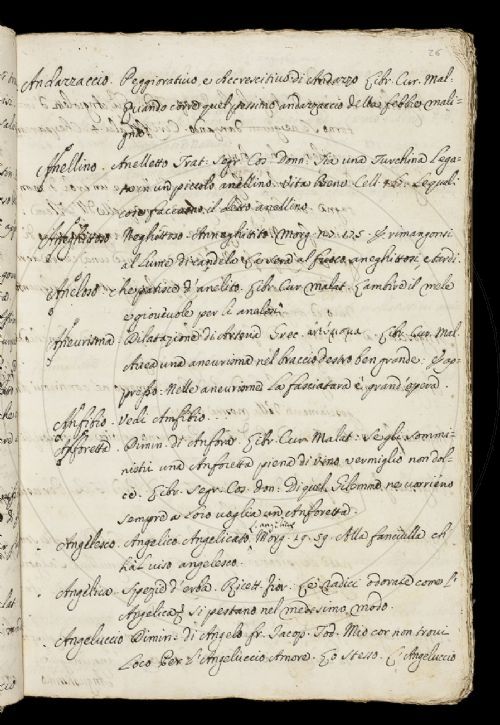 26
Andazzaccio. Peggiorativo, e Accrescitivo di Andazzo. Libr. Cur. Mal:
Quando corre quel pessimo andazzaccio delle febbri mali-
gne.
Anellino. Anelletto. Trat: Segr. Cos. Donn. Sia una Turchina lega-
ta in un piccolo anellino. Vita Benv. Cell. Lequal
cose faceano il detto anellino.
Aneghittoso. Neghittoso. Anneghittito. Morg. 125. E rimangonsi
al lume di candele, La sera al fuoco, aneghittosi e tardi.
Aneloso. che patisce d'anelito. Libr. Cur. malat. Lambire il mele
e giovevole per li anelosi.
Aneurisma. Dilatazione d'Arteria. Grec. Libr. Cur. Mal.
Aveva una aneurisma nel braccio destro ben grande: E ap-
presso: Nelle aneurisme la fasciatura è grand'opera.
Anfibio. Vedi Amfibio.
Anforetta. Dimin. di Anfora. Libr. Cur. Malat: Se gli sommi-
nistri una Anforetta piena di vino vermiglio non dol-
ce. Libr. Segr. Cos. don: Di quel ne vorrieno
sempre a loro voglia un'Anforetta.
Angelesco. Angelico, Angelicato. Morg. 19. 59. Alla fanciulla ch'
ha'l viso angelesco.
Angelica. Spezie d'erba. Ricett. fior. Le Radici odorate come l'
Angelica, si pestano nel medesimo modo.
Angeluccio. Dimin: di Angelo. fr. Jacop. Tod. Mio cor non trovi
Loco Per l'Angeluccio Amore. Lo stesso. L'Angeluccio